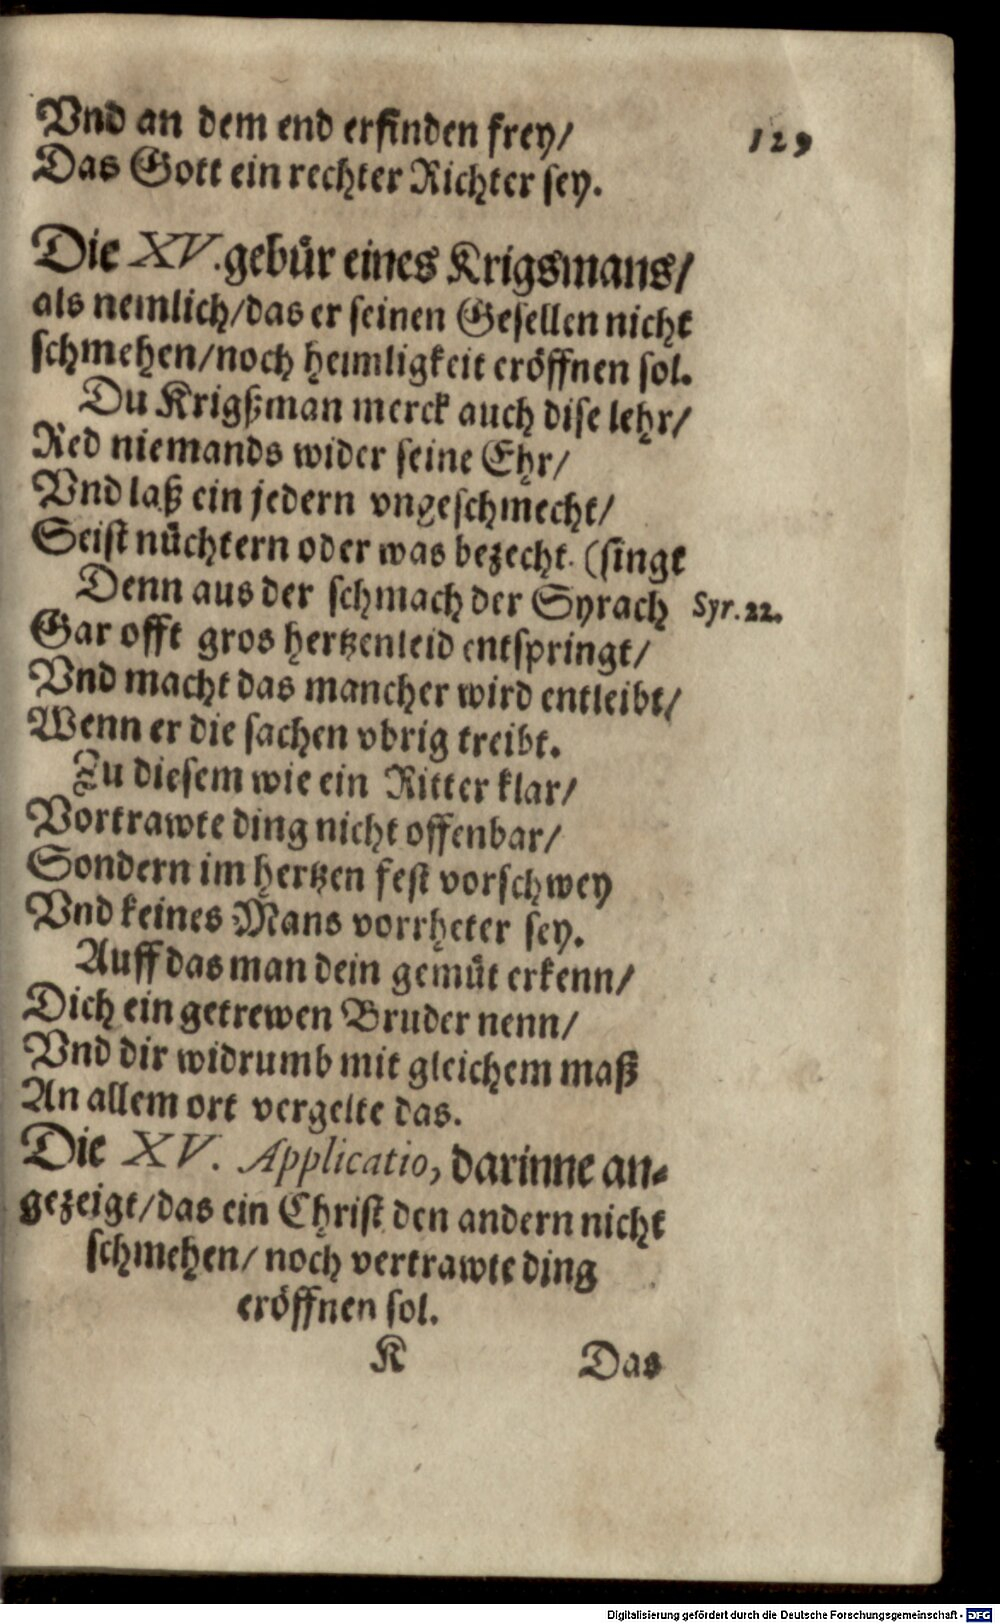 129
Vnd an dem end erfinden frey/
Das Gott ein rechter Richter sey.
Die XV. gebür eines Krigsmans/
als nemlich/das er seinen Gesellen nicht
schmehen/noch heimligkeit eröffnen sol.
Du Krigßman merck auch dise lehr/
Red niemands wider seine Ehr/
Vnd laß ein jedern vngeschmecht/
Seist nüchtern oder was bezecht. (singt
Denn aus der schmach der Syrach
Syr. 22.
Gar offt gros hertzenleid entspringt/
Vnd macht das mancher wird entleibt/
Wenn er die sachen vbrig treibt.
Zu diesem wie ein Ritter klar/
Vortrawte ding nicht offenbar/
Sondern im hertzen fest vorschwey
Vnd keines Mans vorrheter sey.
Auff das man dein gemüt erkenn/
Dich ein getrewen Bruder nenn/
Vnd dir widrumb mit gleichem maß
An allem ort vergelte das.
Die XV. Applicatio, darinne an-
gezeigt/das ein Christ den andern nicht
schmehen/ noch vertrawte ding
eröffnen sol.
K Das
Digitalisierung gefördert durch die Deutsche Forschungsgemeinschaft - DFG